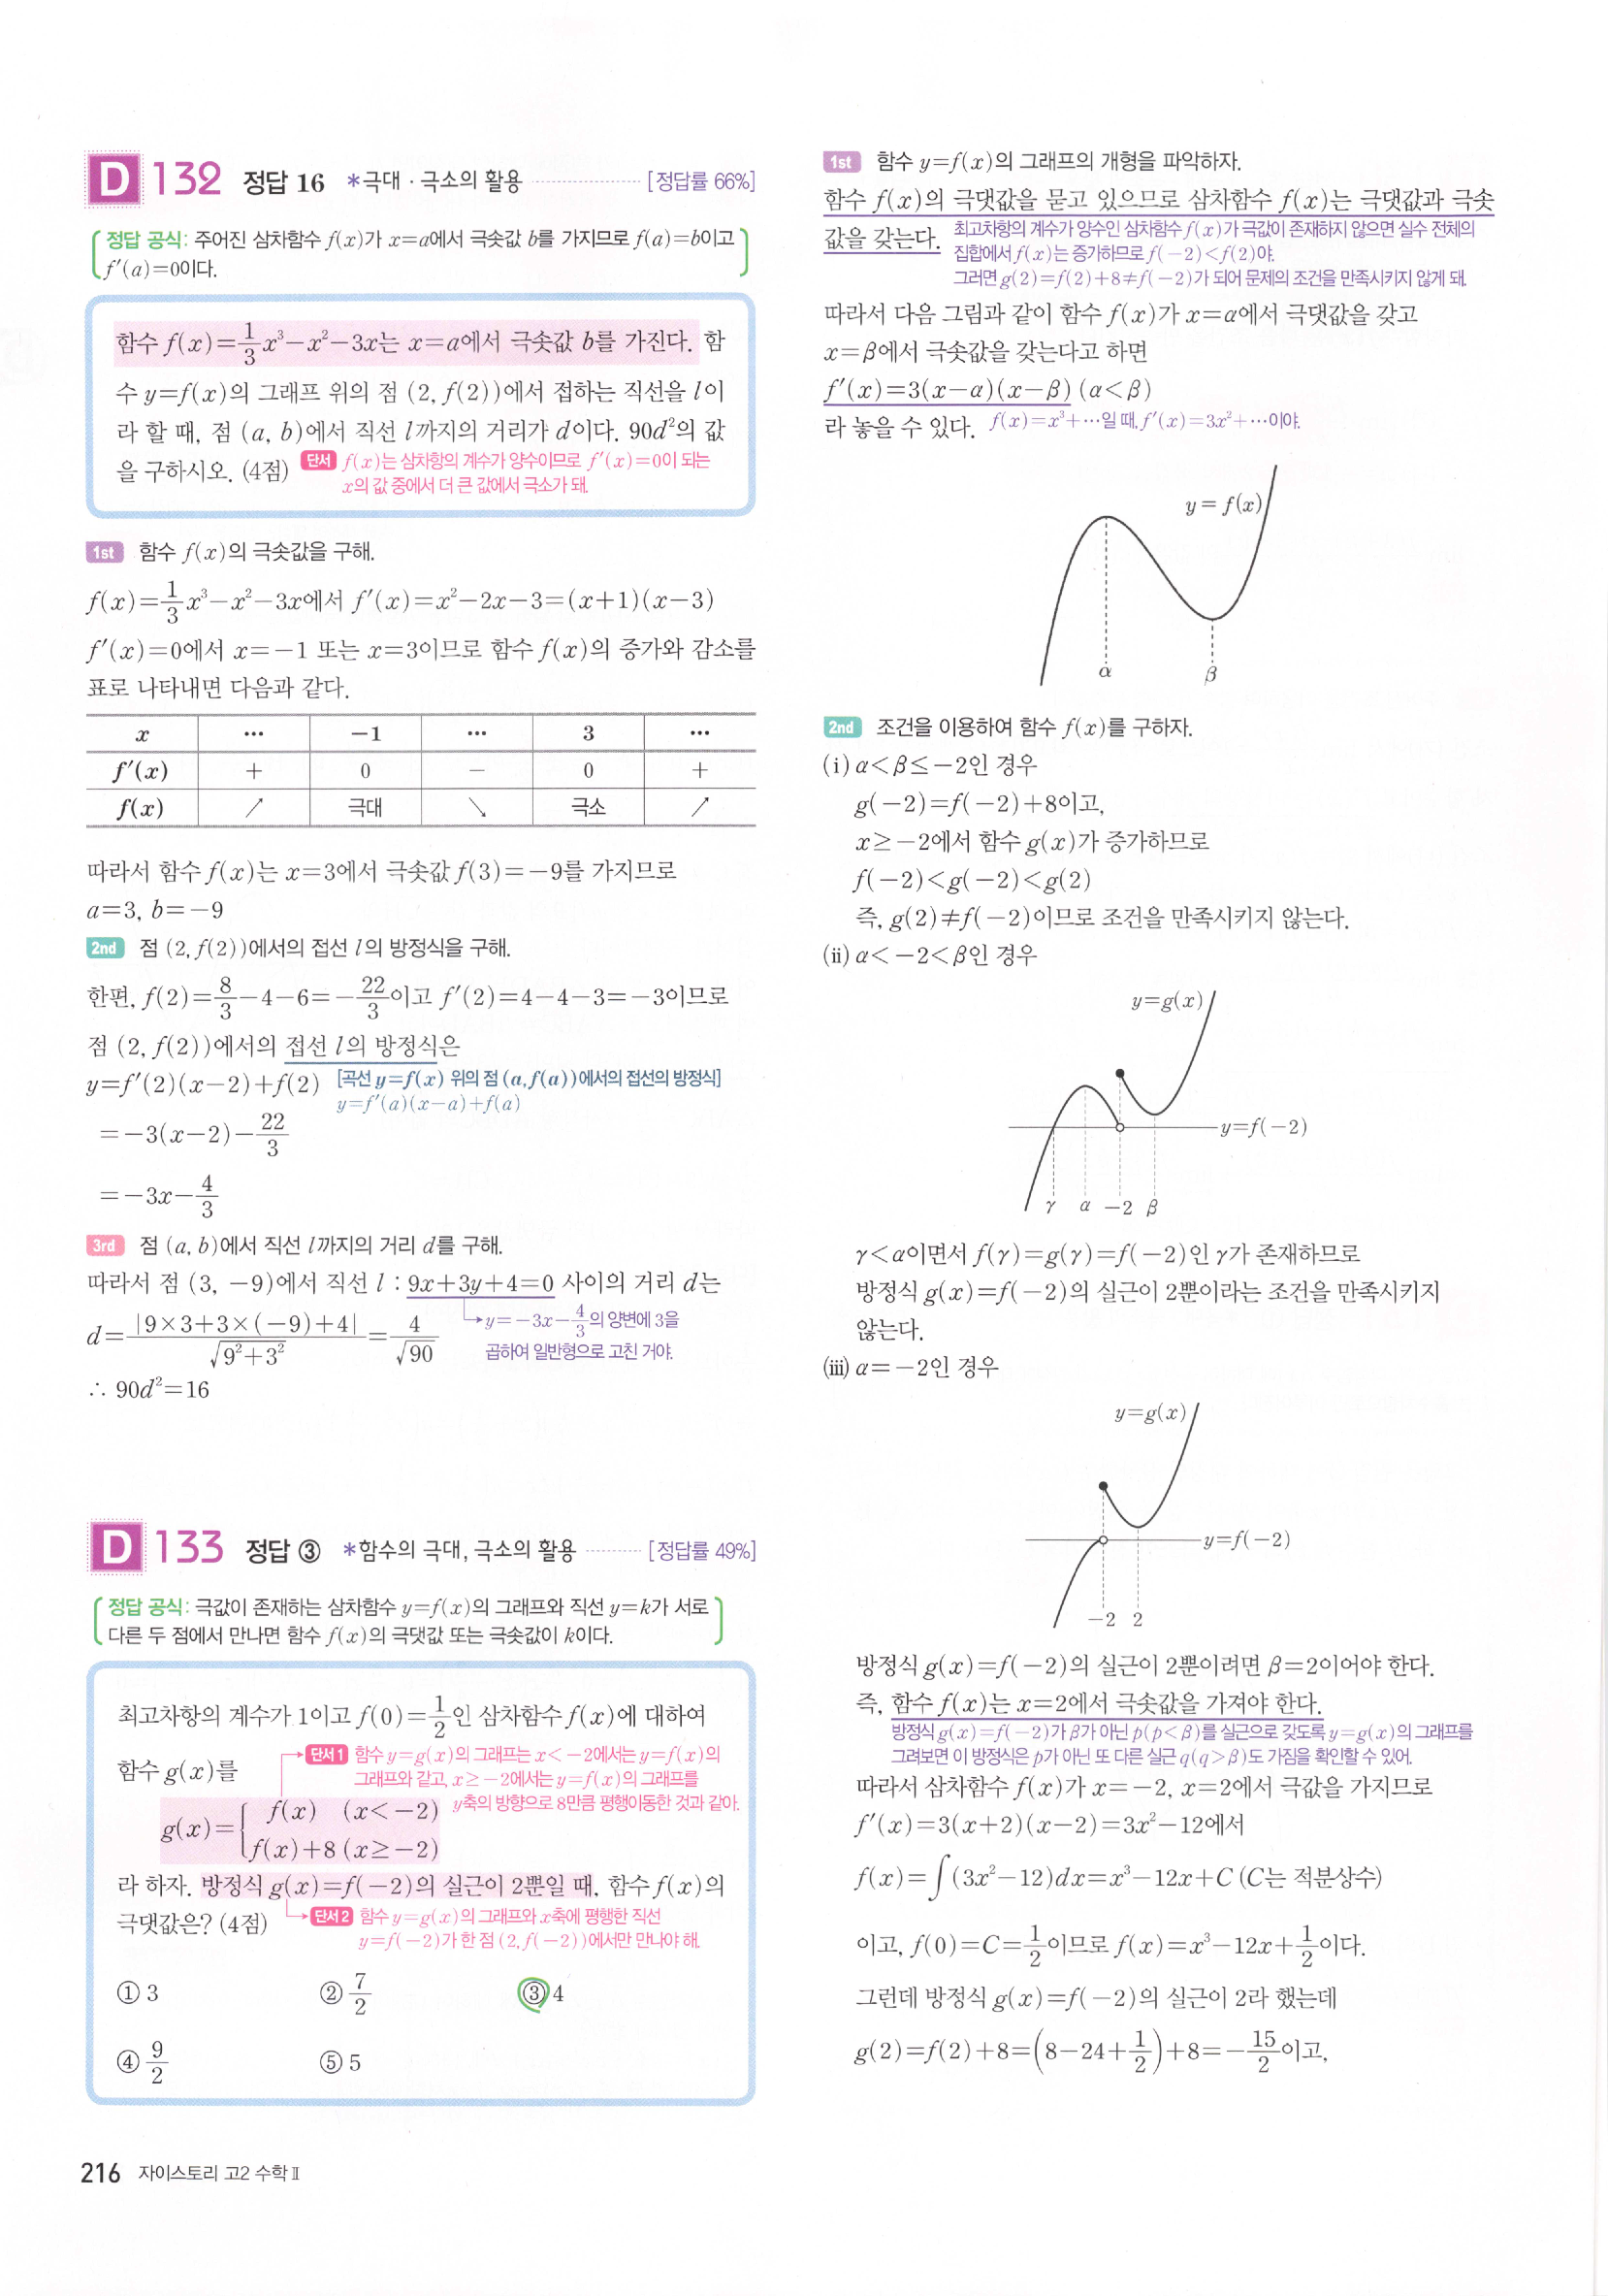 D 132 정답 16 *극대·극소의 활용 ············ [정답률 66%]
정답 공식: 주어진 삼차함수 f(x)가 x=a에서 극솟값 b를 가지므로 f(a)=b이고
f′(a)=0이다.
함수 f(x)=1/3x³-x²-3x는 x=a에서 극솟값 b를 가진다. 함
수 y=f(x)의 그래프 위의 점 (2, f(2))에서 접하는 직선을 l이
라 할 때, 점 (a, b)에서 직선 l까지의 거리가 d이다. 90d²의 값
을 구하시오. (4점) 단서 f(x)는 삼차항의 계수가 양수이므로 f′(x)=0이 되는
x의 값 중에서 더 큰 값에서 극소가 돼.
1st 함수 f(x)의 극솟값을 구해.
f(x)=1/3x³-x²-3x에서 f′(x)=x²-2x-3=(x+1)(x-3)
f′(x)=0에서 x=-1 또는 x=3이므로 함수 f(x)의 증가와 감소를
표로 나타내면 다음과 같다.
x … -1 … 3 …
f′(x) + 0 - 0 +
f(x) ↗ 극대 ↘ 극소 ↗
따라서 함수 f(x)는 x=3에서 극솟값 f(3)=-9를 가지므로
a=3, b=-9
2nd 점 (2, f(2))에서의 접선 l의 방정식을 구해.
한편, f(2)=8/3-4-6=-22/3이고 f′(2)=4-4-3=-3이므로
점 (2, f(2))에서의 접선 l의 방정식은
y=f′(2)(x-2)+f(2) [곡선 y=f(x) 위의 점 (a, f(a))에서의 접선의 방정식]
y=f′(a)(x-a)+f(a)
=-3(x-2)-22/3
=-3x-4/3
3rd 점 (a, b)에서 직선 l까지의 거리 d를 구해.
따라서 점 (3, -9)에서 직선 l : 9x+3y+4=0 사이의 거리 d는
d=|9×3+3×(-9)+4|/√(9²+3²)=4/√90 →y=-3x-4/3의 양변에 3을
곱하여 일반형으로 고친 거야.
∴ 90d²=16
D 133 정답 ③ *함수의 극대, 극소의 활용 ········ [정답률 49%]
정답 공식: 극값이 존재하는 삼차함수 y=f(x)의 그래프와 직선 y=k가 서로
다른 두 점에서 만나면 함수 f(x)의 극댓값 또는 극솟값이 k이다.
최고차항의 계수가 1이고 f(0)=1/2인 삼차함수 f(x)에 대하여
함수 g(x)를
단서1 함수 y=g(x)의 그래프는 x<-2에서는 y=f(x)의
그래프와 같고, x≥-2에서는 y=f(x)의 그래프를
y축의 방향으로 8만큼 평행이동한 것과 같아.
g(x)={ f(x) (x<-2)
f(x)+8 (x≥-2)
라 하자. 방정식 g(x)=f(-2)의 실근이 2뿐일 때, 함수 f(x)의
극댓값은? (4점) 단서2 함수 y=g(x)의 그래프와 x축에 평행한 직선
y=f(-2)가 한 점 (2, f(-2))에서만 만나야 해.
① 3 ② 7/2 ③ 4
④ 9/2 ⑤ 5
216 자이스토리 고2 수학 Ⅱ
1st 함수 y=f(x)의 그래프의 개형을 파악하자.
함수 f(x)의 극댓값을 묻고 있으므로 삼차함수 f(x)는 극댓값과 극솟
값을 갖는다. 최고차항의 계수가 양수인 삼차함수 f(x)가 극값이 존재하지 않으면 실수 전체의
집합에서 f(x)는 증가하므로 f(-2)<f(2)야.
그러면 g(2)=f(2)+8≠f(-2)가 되어 문제의 조건을 만족시키지 않게 돼.
따라서 다음 그림과 같이 함수 f(x)가 x=α에서 극댓값을 갖고
x=β에서 극솟값을 갖는다고 하면
f′(x)=3(x-α)(x-β) (α<β)
라 놓을 수 있다. f(x)=x³+…일 때, f′(x)=3x²+…이야.
y=f(x)
α β
2nd 조건을 이용하여 함수 f(x)를 구하자.
(i) α<β≤-2인 경우
g(-2)=f(-2)+8이고,
x≥-2에서 함수 g(x)가 증가하므로
f(-2)<g(-2)<g(2)
즉, g(2)≠f(-2)이므로 조건을 만족시키지 않는다.
(ii) α<-2<β인 경우
y=g(x)
y=f(-2)
γ α -2 β
γ<α이면서 f(γ)=g(γ)=f(-2)인 γ가 존재하므로
방정식 g(x)=f(-2)의 실근이 2뿐이라는 조건을 만족시키지
않는다.
(iii) α=-2인 경우
y=g(x)
y=f(-2)
-2 2
방정식 g(x)=f(-2)의 실근이 2뿐이려면 β=2이어야 한다.
즉, 함수 f(x)는 x=2에서 극솟값을 가져야 한다.
방정식 g(x)=f(-2)가 β가 아닌 p(p<β)를 실근으로 갖도록 y=g(x)의 그래프를
그려보면 이 방정식은 p가 아닌 또 다른 실근 q(q>β)도 가짐을 확인할 수 있어.
따라서 삼차함수 f(x)가 x=-2, x=2에서 극값을 가지므로
f′(x)=3(x+2)(x-2)=3x²-12에서
f(x)=∫(3x²-12)dx=x³-12x+C (C는 적분상수)
이고, f(0)=C=1/2이므로 f(x)=x³-12x+1/2이다.
그런데 방정식 g(x)=f(-2)의 실근이 2라 했는데
g(2)=f(2)+8=(8-24+1/2)+8=-15/2이고,